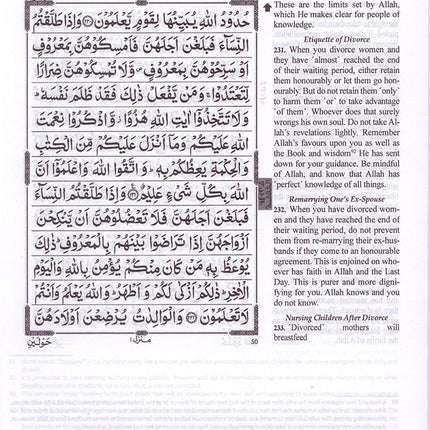 حُدُودُ اللّٰهِ يُبَيِّنُهَا لِقَوْمٍ يَّعْلَمُوْنَ ﴿۲۳۰﴾ وَاِذَا طَلَّقْتُمُ
النِّسَآءَ فَبَلَغْنَ اَجَلَهُنَّ فَاَمْسِكُوْهُنَّ بِمَعْرُوْفٍ
اَوْ سَرِّحُوْهُنَّ بِمَعْرُوْفٍ ۪ وَّلَا تُمْسِكُوْهُنَّ ضِرَارًا
لِّتَعْتَدُوْا ۚ وَمَنْ يَّفْعَلْ ذٰلِكَ فَقَدْ ظَلَمَ نَفْسَهٗ ؕ
وَلَا تَتَّخِذُوْۤا اٰيٰتِ اللّٰهِ هُزُوًا ۫ وَّاذْكُرُوْا نِعْمَتَ
اللّٰهِ عَلَيْكُمْ وَمَاۤ اَنْزَلَ عَلَيْكُمْ مِّنَ الْكِتٰبِ
وَالْحِكْمَةِ يَعِظُكُمْ بِهٖ ؕ وَاتَّقُوا اللّٰهَ وَاعْلَمُوْۤا اَنَّ
اللّٰهَ بِكُلِّ شَيْءٍ عَلِيْمٌ ﴿۲۳۱﴾ وَاِذَا طَلَّقْتُمُ النِّسَآءَ
فَبَلَغْنَ اَجَلَهُنَّ فَلَا تَعْضُلُوْهُنَّ اَنْ يَّنْكِحْنَ
اَزْوَاجَهُنَّ اِذَا تَرَاضَوْا بَيْنَهُمْ بِالْمَعْرُوْفِ ؕ ذٰلِكَ
يُوْعَظُ بِهٖ مَنْ كَانَ مِنْكُمْ يُؤْمِنُ بِاللّٰهِ وَالْيَوْمِ
الْاٰخِرِ ؕ ذٰلِكُمْ اَزْكٰى لَكُمْ وَاَطْهَرُ ؕ وَاللّٰهُ يَعْلَمُ وَاَنْتُمْ
لَا تَعْلَمُوْنَ ﴿۲۳۲﴾ وَالْوَالِدٰتُ يُرْضِعْنَ اَوْلَادَهُنَّ
حَوْلَيْنِ
منزل ١
50
These are the limits set by Allah,
which He makes clear for people of
knowledge.
Etiquette of Divorce
231. When you divorce women and
they have ˹almost˺ reached the end
of their waiting period, either retain
them honourably or let them go hon-
ourably. But do not retain them ˹only˺
to harm them ˹or˺ to take advantage
˹of them˺. Whoever does that surely
wrongs his own soul. Do not take Al-
lah's revelations lightly. Remember
Allah's favours upon you as well as
the Book and wisdom⁹² He has sent
down for your guidance. Be mindful
of Allah, and know that Allah has
˹perfect˺ knowledge of all things.
Remarrying One's Ex-Spouse
232. When you have divorced women
and they have reached the end of
their waiting period, do not prevent
them from re-marrying their ex-hus-
bands if they come to an honourable
agreement. This is enjoined on who-
ever has faith in Allah and the Last
Day. This is purer and more digni-
fying for you. Allah knows and you
do not know.
Nursing Children After Divorce
233. ˹Divorced˺ mothers will
breastfeed